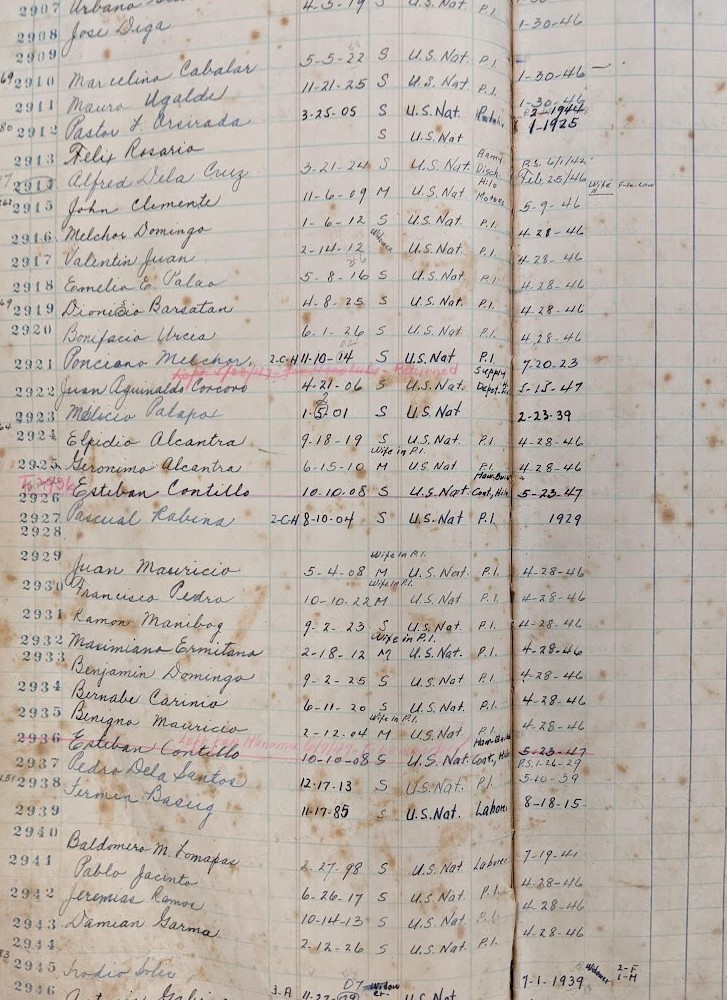 2907 Urbano 4-5-19 S U.S. Nat. P.I.
2908 Jose Diga 1-30-46
2909 5-5-22 S U.S. Nat. P.I.
69 2910 Marcelino Cabalar 11-21-25 S U.S. Nat. P.I. 1-30-46 —
2911 Mauro Ugalde 3-25-05 S U.S. Nat. 1-30-46 2-1944
80 2912 Pastor F. Orsirada S U.S. Nat 1-1925
2913 Felix Rosario Army
2914 Alfred Dela Cruz 3-21-24 S U.S. Nat. Disch. P.S. 6/1/42 Feb. 25/46
2915 John Clemente 11-6-09 M U.S. Nat Hilo Motors 5-9-46 Wife
2916 Melchor Domingo 1-6-12 S U.S. Nat. P.I. 4-28-46
2917 Valentin Juan 2-14-12 Widower U.S. Nat. P.I. 4-28-46
2918 Esmelio E. Palao 5-8-16 S U.S. Nat. P.I. 4-28-46
69 2919 Dionicio Barsatan 4-8-25 S U.S. Nat. P.I. 4-28-46
2920 Bonifacio Urcia 6-1-26 S U.S. Nat. P.I. 4-28-46
2921 Ponciano Melchor 2-C-H 11-10-14 S U.S. Nat P.I. 7-20-23
Left Honolulu - Returned
2922 Juan Aguinaldo Corcoro 4-21-06 S U.S. Nat. Supply Depot. 5-15-47
2923 Melocio Palapox 1-5-01 S U.S. Nat 2-23-39
64 2924 Elpidio Alcantra 9-18-19 S U.S. Nat. P.I. 4-28-46
Wife in P.I.
2925 Geronimo Alcantra 6-15-10 M U.S. Nat P.I. 4-28-46
2926 Esteban Contillo 10-10-08 S U.S. Nat. Cont, Hilo 5-23-47
2927 Pascual Rabina 2-C-H 8-10-04 S U.S. Nat P.I. 1929
2928
Wife in P.I.
2929 Juan Mauricio 5-4-08 M U.S. Nat. P.I. 4-28-46
Wife in P.I.
2930 Francisco Pedro 10-10-22 M U.S. Nat. P.I. 4-28-46
2931 Ramon Manibog 9-2-23 S U.S. Nat. P.I. 4-28-46
Wife in P.I.
2932 Masimiano Ermitano 2-18-12 M U.S. Nat. P.I. 4-28-46
2933 Benjamin Domingo 9-2-25 S U.S. Nat. P.I. 4-28-46
2934 Bernabe Carinio 6-11-20 S U.S. Nat. P.I. 4-28-46
Wife in P.I.
2935 Benigno Mauricio 2-12-04 M U.S. Nat. P.I. 4-28-46
2936 Esteban Contillo 10-10-08 S U.S. Nat Cont, Hilo 5-23-47
2937 Pedro Dela Santos 12-17-13 S U.S. Nat. P.I. P.S. 1-26-29 5-10-39
151 2938 Fermin Basug 11-17-85 S U.S. Nat. Laborer 8-18-15
2939
2940 Baldomero M. Lomapas 2-27-98 S U.S. Nat Laborer 7-19-41
2941 Pablo Jacinto 6-26-17 S U.S. Nat. P.I. 4-28-46
2942 Jeremias Ramos 10-14-13 S U.S. Nat. P.I. 4-28-46
2943 Damian Garma 2-12-26 S U.S. Nat. P.I. 4-28-46
2944
83 2945 07 Widower 7-1-1939 Widower 2-F 1-M
2946 3-A U.S. Nat